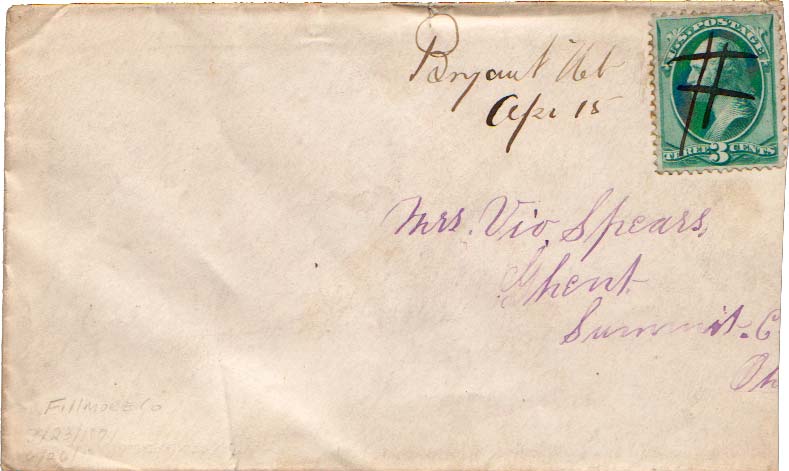 Bryant Neb
Apr 15
U.S. POSTAGE
THREE 3 CENTS
Mrs. Vio Spears,
Ghent
Summit. C
Oh
Fillmore Co